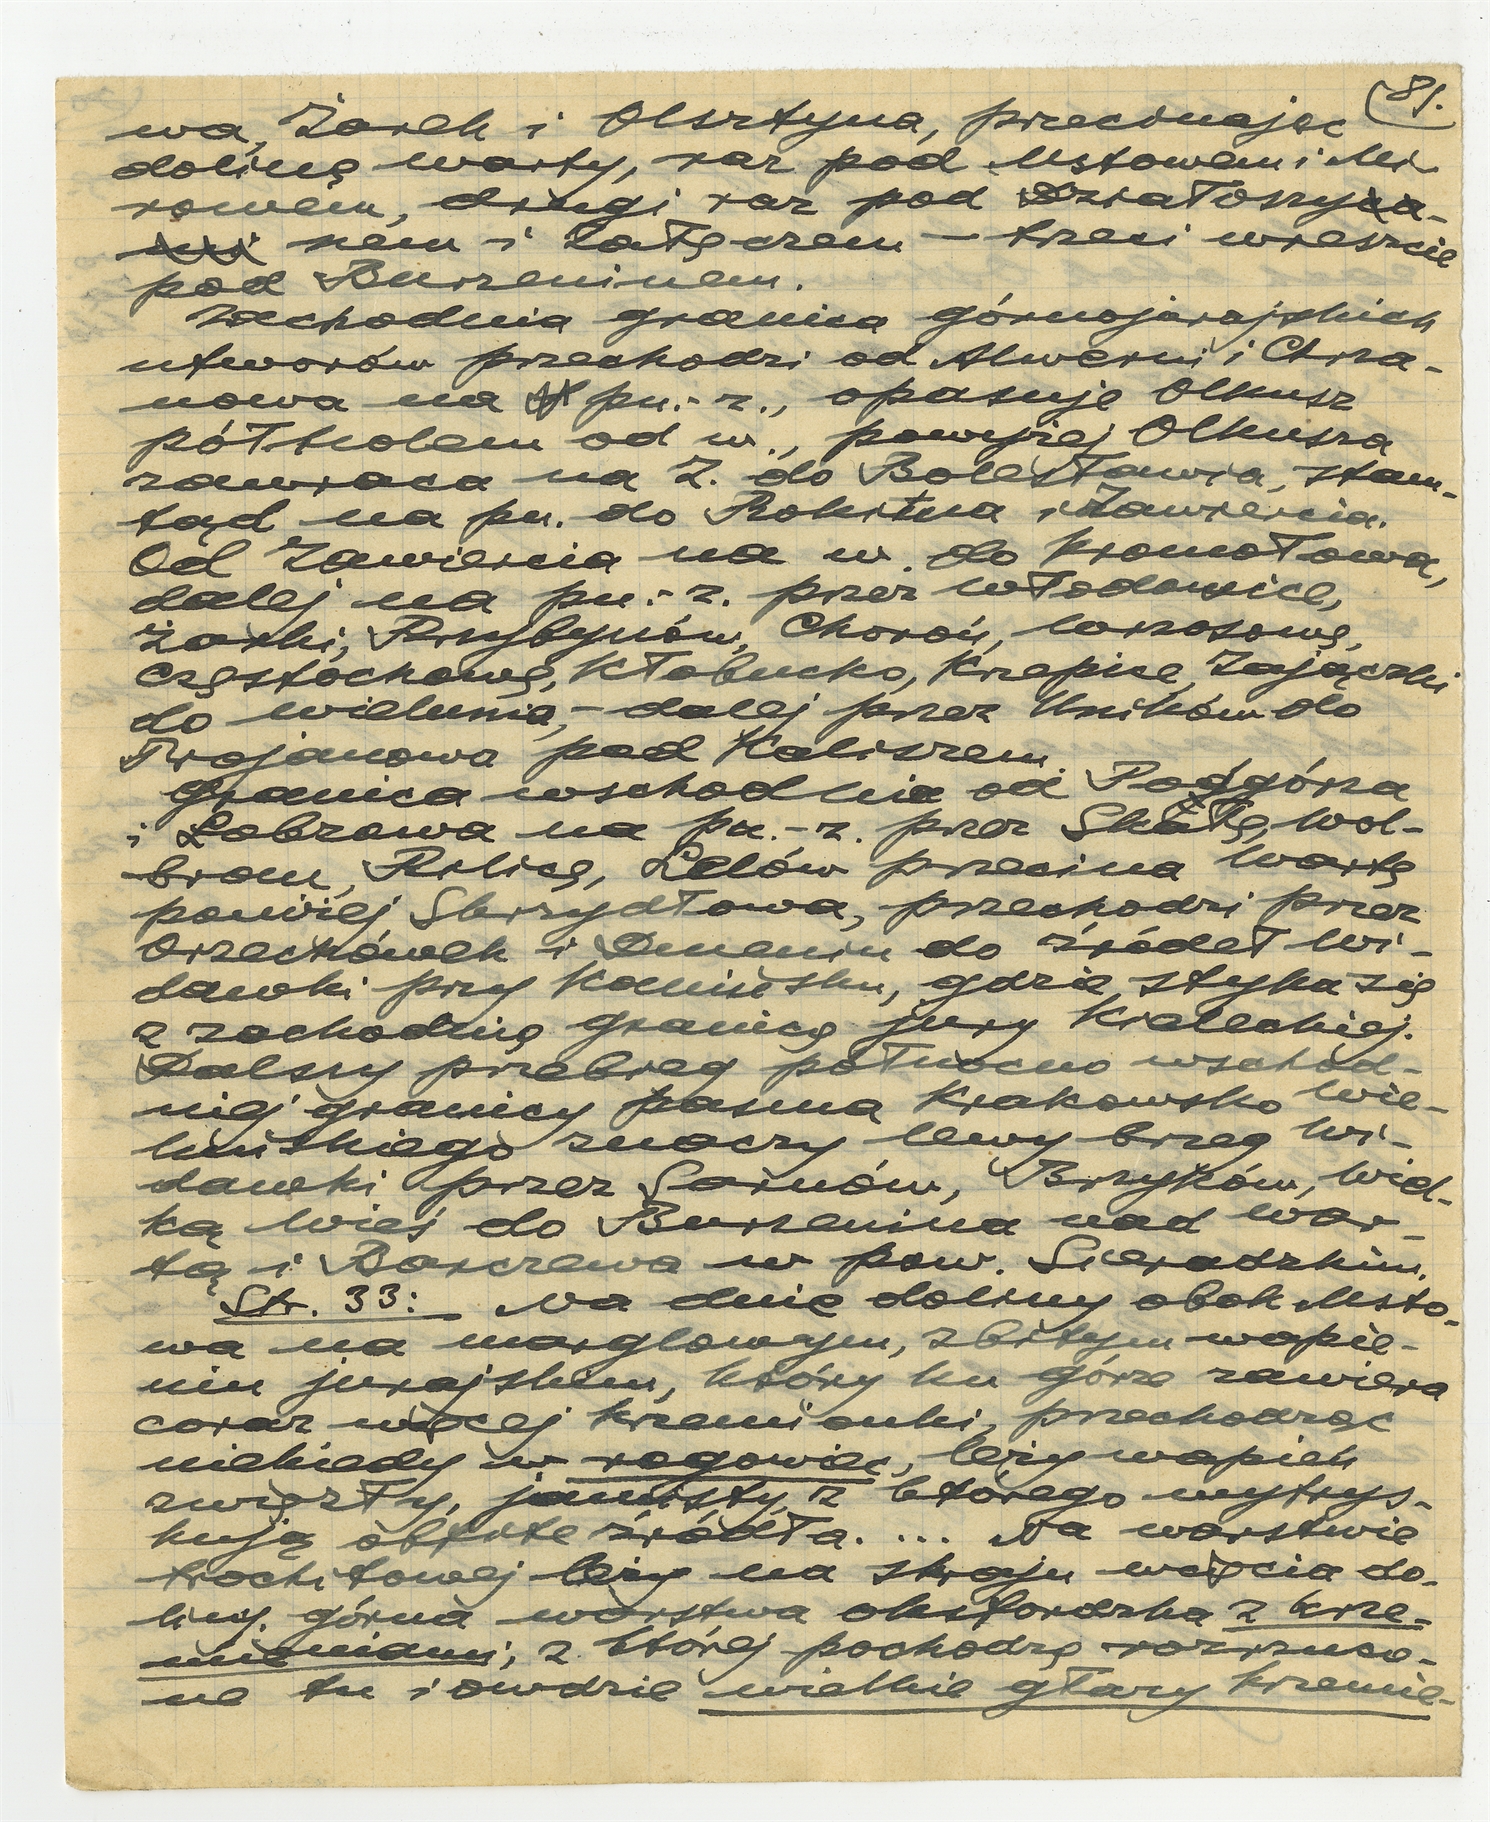 81.
wa, Żarek i Olsztyna, przecinając
dolinę Warty, raz pod Mstowem i Mi-
rowem, drugi raz pod Działoszyca-
mi nem i Załęczem – trzeci wreszcie
pod Burzeninem.
Zachodnia granica górnojurajskich
utworów przechodzi od Alwerni i Chrza-
nowa na pn.-z., opasuje Olkusz
półkolem od w., powyżej Olkusza
zawraca na Z. do Bolesławia, stam-
tąd na pn. do Rokitna i Zawiercia.
Od Zawiercia na w. do Kromołowa,
dalej na pn.-z. przez Włodowice,
Żarki, Przybynów, Choroń, Wrzosowę,
Częstochowę, Kłobucko, Krzepice, Zajączki
do Wielunia, – dalej przez Uników do
Trojanowa pod Kaliszem.
Granica wschodnia od Podgórza
i Łobzowa na pn.-z. przez Skałę, Wol-
brom, Pilicę, Lelów przecina Wartę
poniżej Skrzydłowa, przechodzi przez
Orzechówek i Dmenin do źródeł Wi-
dawki przy Kamińsku, gdzie styka się
z zachodnią granicą jury Kieleckiej.
Dalszy przebieg północno wschod-
niej granicy pasma Krakowsko Wie-
luńskiego znaczy lewy brzeg Wi-
dawki przez Sarnów, Brzyków, Wiel-
ką Wieś do Burzenina nad War-
tą i Barczewa w pow. Sieradzkim.
Str. 33: Na dnie doliny obok Msto-
wa na marglowym, zbitym wapie-
niu jurajskim, który ku górze zawiera
coraz więcej krzemionki, przechodząc
niekiedy w rogowiec, leży wapień
zwięzły, jamisty, z którego wytrys-
kują obfite źródła. ... Na warstwie
trochitowej leży na skraju wcięcia do-
liny, górna warstwa oksfordzka z krze-
mieniami, z której pochodzą rozrzuco-
ne tu i owdzie wielkie głazy krzemie-